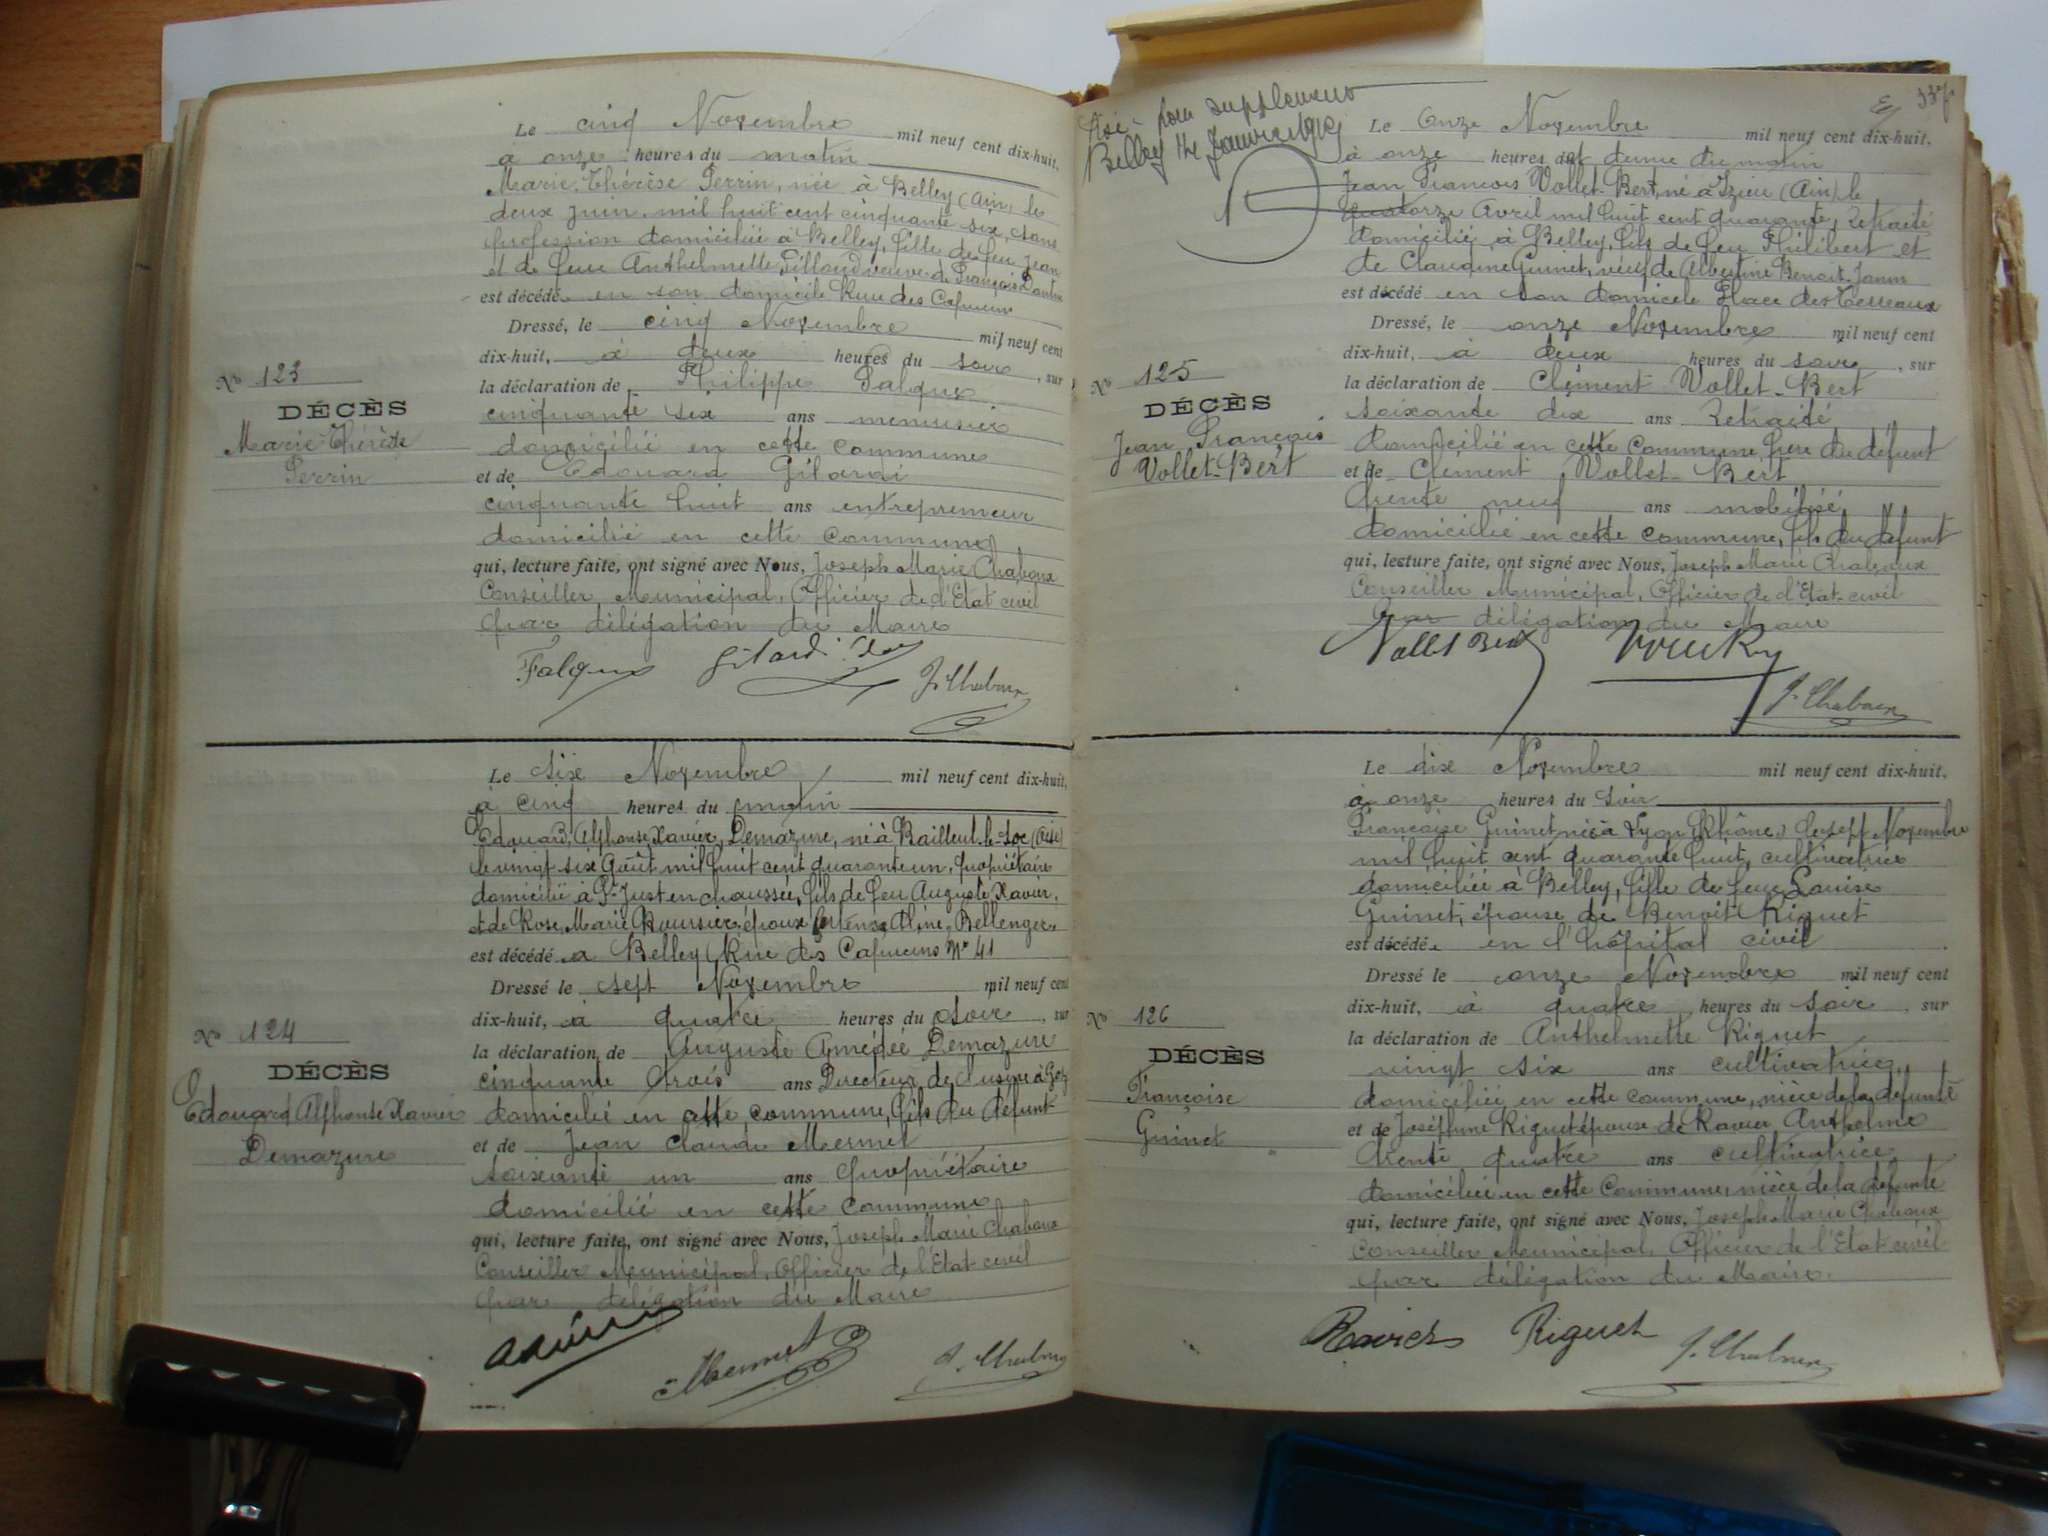 Le cinq Novembre mil neuf cent dix-huit,
à onze heures du matin
Marie Thérèse Perrin, née à Belley (Ain) le
deux Juin mil huit cent cinquante six, sans
profession domiciliée à Belley, fille de feu Jean
et de feue Anthelmette veuve de François
est décédée en son domicile Rue des Capucins
Dressé, le cinq Novembre mil neuf cent
dix-huit, à deux heures du soir, sur
la déclaration de Philippe Falque
cinquante six ans menuisier
domicilié en cette commune
et de Edouard Gilardi
cinquante huit ans entrepreneur
domicilié en cette commune
qui, lecture faite, ont signé avec Nous, Joseph Marie Chaboux
Conseiller Municipal, Officier de l'Etat civil
par délégation du Maire
Falque Gilardi J. Chaboux
No 123
DÉCÈS
Marie Thérèse
Perrin
Le six Novembre mil neuf cent dix-huit,
à cinq heures du matin
Edouard, Alphonse, Xavier, Demazure, né à Bailleul-le-Soc (Oise)
le vingt six Août mil huit cent quarante un, propriétaire
domicilié à St Just en chaussée, fils de feu Auguste Xavier,
et de Rose Marie Boursier, époux Hortense Aline Bellenger
est décédé à Belley Rue des Capucins No 41
Dressé le sept Novembre mil neuf cent
dix-huit, à quatre heures du soir, sur
la déclaration de Auguste Amédée Demazure
cinquante trois ans Directeur de l'usine à Gaz
domicilié en cette commune, fils du défunt
et de Jean Claude Mermet
soixante un ans propriétaire
domicilié en cette commune
qui, lecture faite, ont signé avec Nous, Joseph Marie Chaboux
Conseiller Municipal, Officier de l'Etat civil
par délégation du Maire
Mermet J. Chaboux
No 124
DÉCÈS
Edouard Alphonse Xavier
Demazure
pour supplément
Belley 14 Janvier 1919
Le Onze Novembre mil neuf cent dix-huit,
à onze heures et demie du matin
Jean François Vollet-Bert, né à Izieu (Ain) le
quatorze Avril mil huit cent quarante, Retraité
domicilié à Belley, fils de feu Philibert et
de Claudine Guinet, veuf de Albertine Benoit-Janin
est décédé en son domicile Place des Terreaux
Dressé, le onze Novembre mil neuf cent
dix-huit, à deux heures du soir, sur
la déclaration de Clément Vollet-Bert
soixante dix ans Retraité
domicilié en cette commune, frère du défunt
et de Clément Vollet-Bert
trente neuf ans mobilisé
domicilié en cette commune, fils du défunt
qui, lecture faite, ont signé avec Nous, Joseph Marie Chaboux
Conseiller Municipal, Officier de l'Etat-civil
par délégation du Maire
Vollet Bert J. Chaboux
No 125
DÉCÈS
Jean François
Vollet-Bert
Le dix Novembre mil neuf cent dix-huit,
à onze heures du soir
Françoise Guinet, née à Lyon (Rhône) le sept Novembre
mil huit cent quarante huit, cultivatrice
domiciliée à Belley, fille de feue Louise
Guinet, épouse de Benoit Riguet
est décédée en l'hôpital civil
Dressé le onze Novembre mil neuf cent
dix-huit, à quatre heures du soir, sur
la déclaration de Anthelmette Riguet
vingt six ans cultivatrice,
domiciliée en cette commune, nièce de la défunte
et de Joséphine Riguet épouse de Ravier Anthelme
trente quatre ans cultivatrice
domiciliée en cette commune, nièce de la défunte
qui, lecture faite, ont signé avec Nous, Joseph Marie Chaboux
Conseiller Municipal, Officier de l'Etat civil
par délégation du Maire.
Ravier Riguet J. Chaboux
No 126
DÉCÈS
Françoise
Guinet